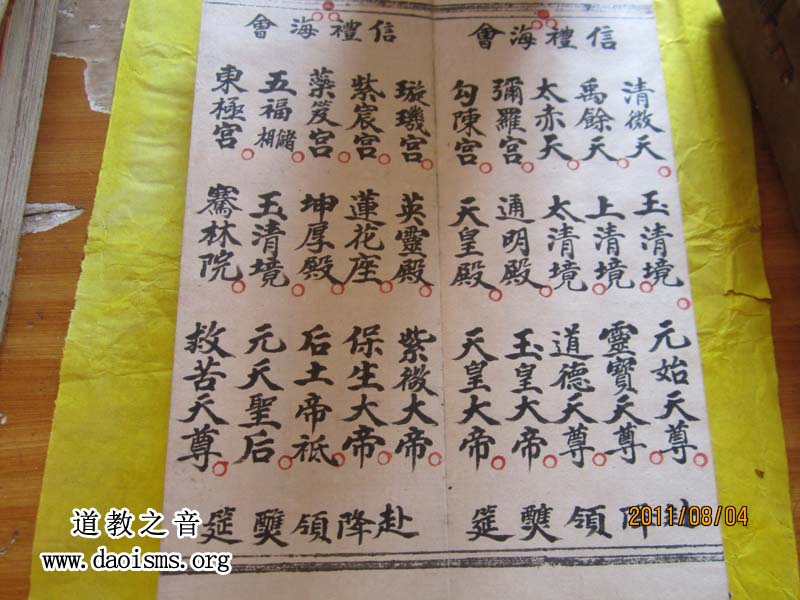 信禮海會
清微天 玉清境 元始天尊
禹餘天 上清境 靈寶天尊
太赤天 太清境 道德天尊
彌羅宮 通明殿 玉皇大帝
勾陳宮 天皇殿 天皇大帝
降領醮筵
信禮海會
璇璣宮 英靈殿 紫微大帝
紫宸宮 蓮花座 保生大帝
蘂笈宮 坤厚殿 后土帝祗
五福儲相 玉清境 元天聖后
東極宮 騫林院 救苦天尊
赴降領醮筵
2011/08/04
道教之音
www.daoisms.org